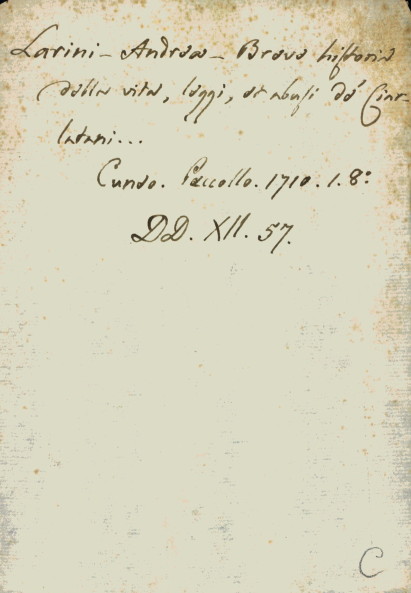 Larini - Andrea - Breve historia
della vita, leggi, et abusi de' Ciar-
latani...
Cuneo. Paccollo. 1710. 1. 8:
DD. XII. 57.
C